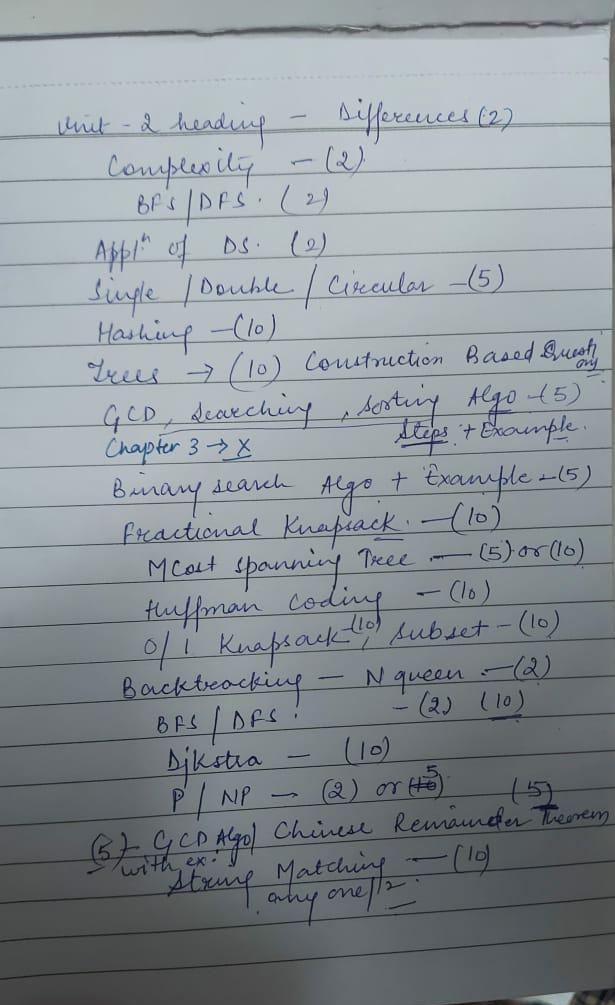 Unit - 2 heading - Differences (2)
Complexity - (2)
BFS / DFS. (2)
Applⁿ of DS. (2)
Single / Double / Circular - (5)
Hashing - (10)
Trees → (10) Construction Based Questn only
GCD, Searching, Sorting Algo - (5)
Chapter 3 → X Steps + Example.
Binary search Algo + Example - (5)
Fractional Knapsack. - (10)
M Cost Spanning Tree - (5) or (10)
Huffman Coding - (10)
0/1 Knapsack - (10), Subset - (10)
Backtracking - N queen - (2)
BFS / DFS. - (2) (10)
Djkstra - (10)
P / NP → (2) or 5 (5)
(5) - GCD Algo / Chinese Remainder Theorem
with ex.
String Matching - (10)
any one //